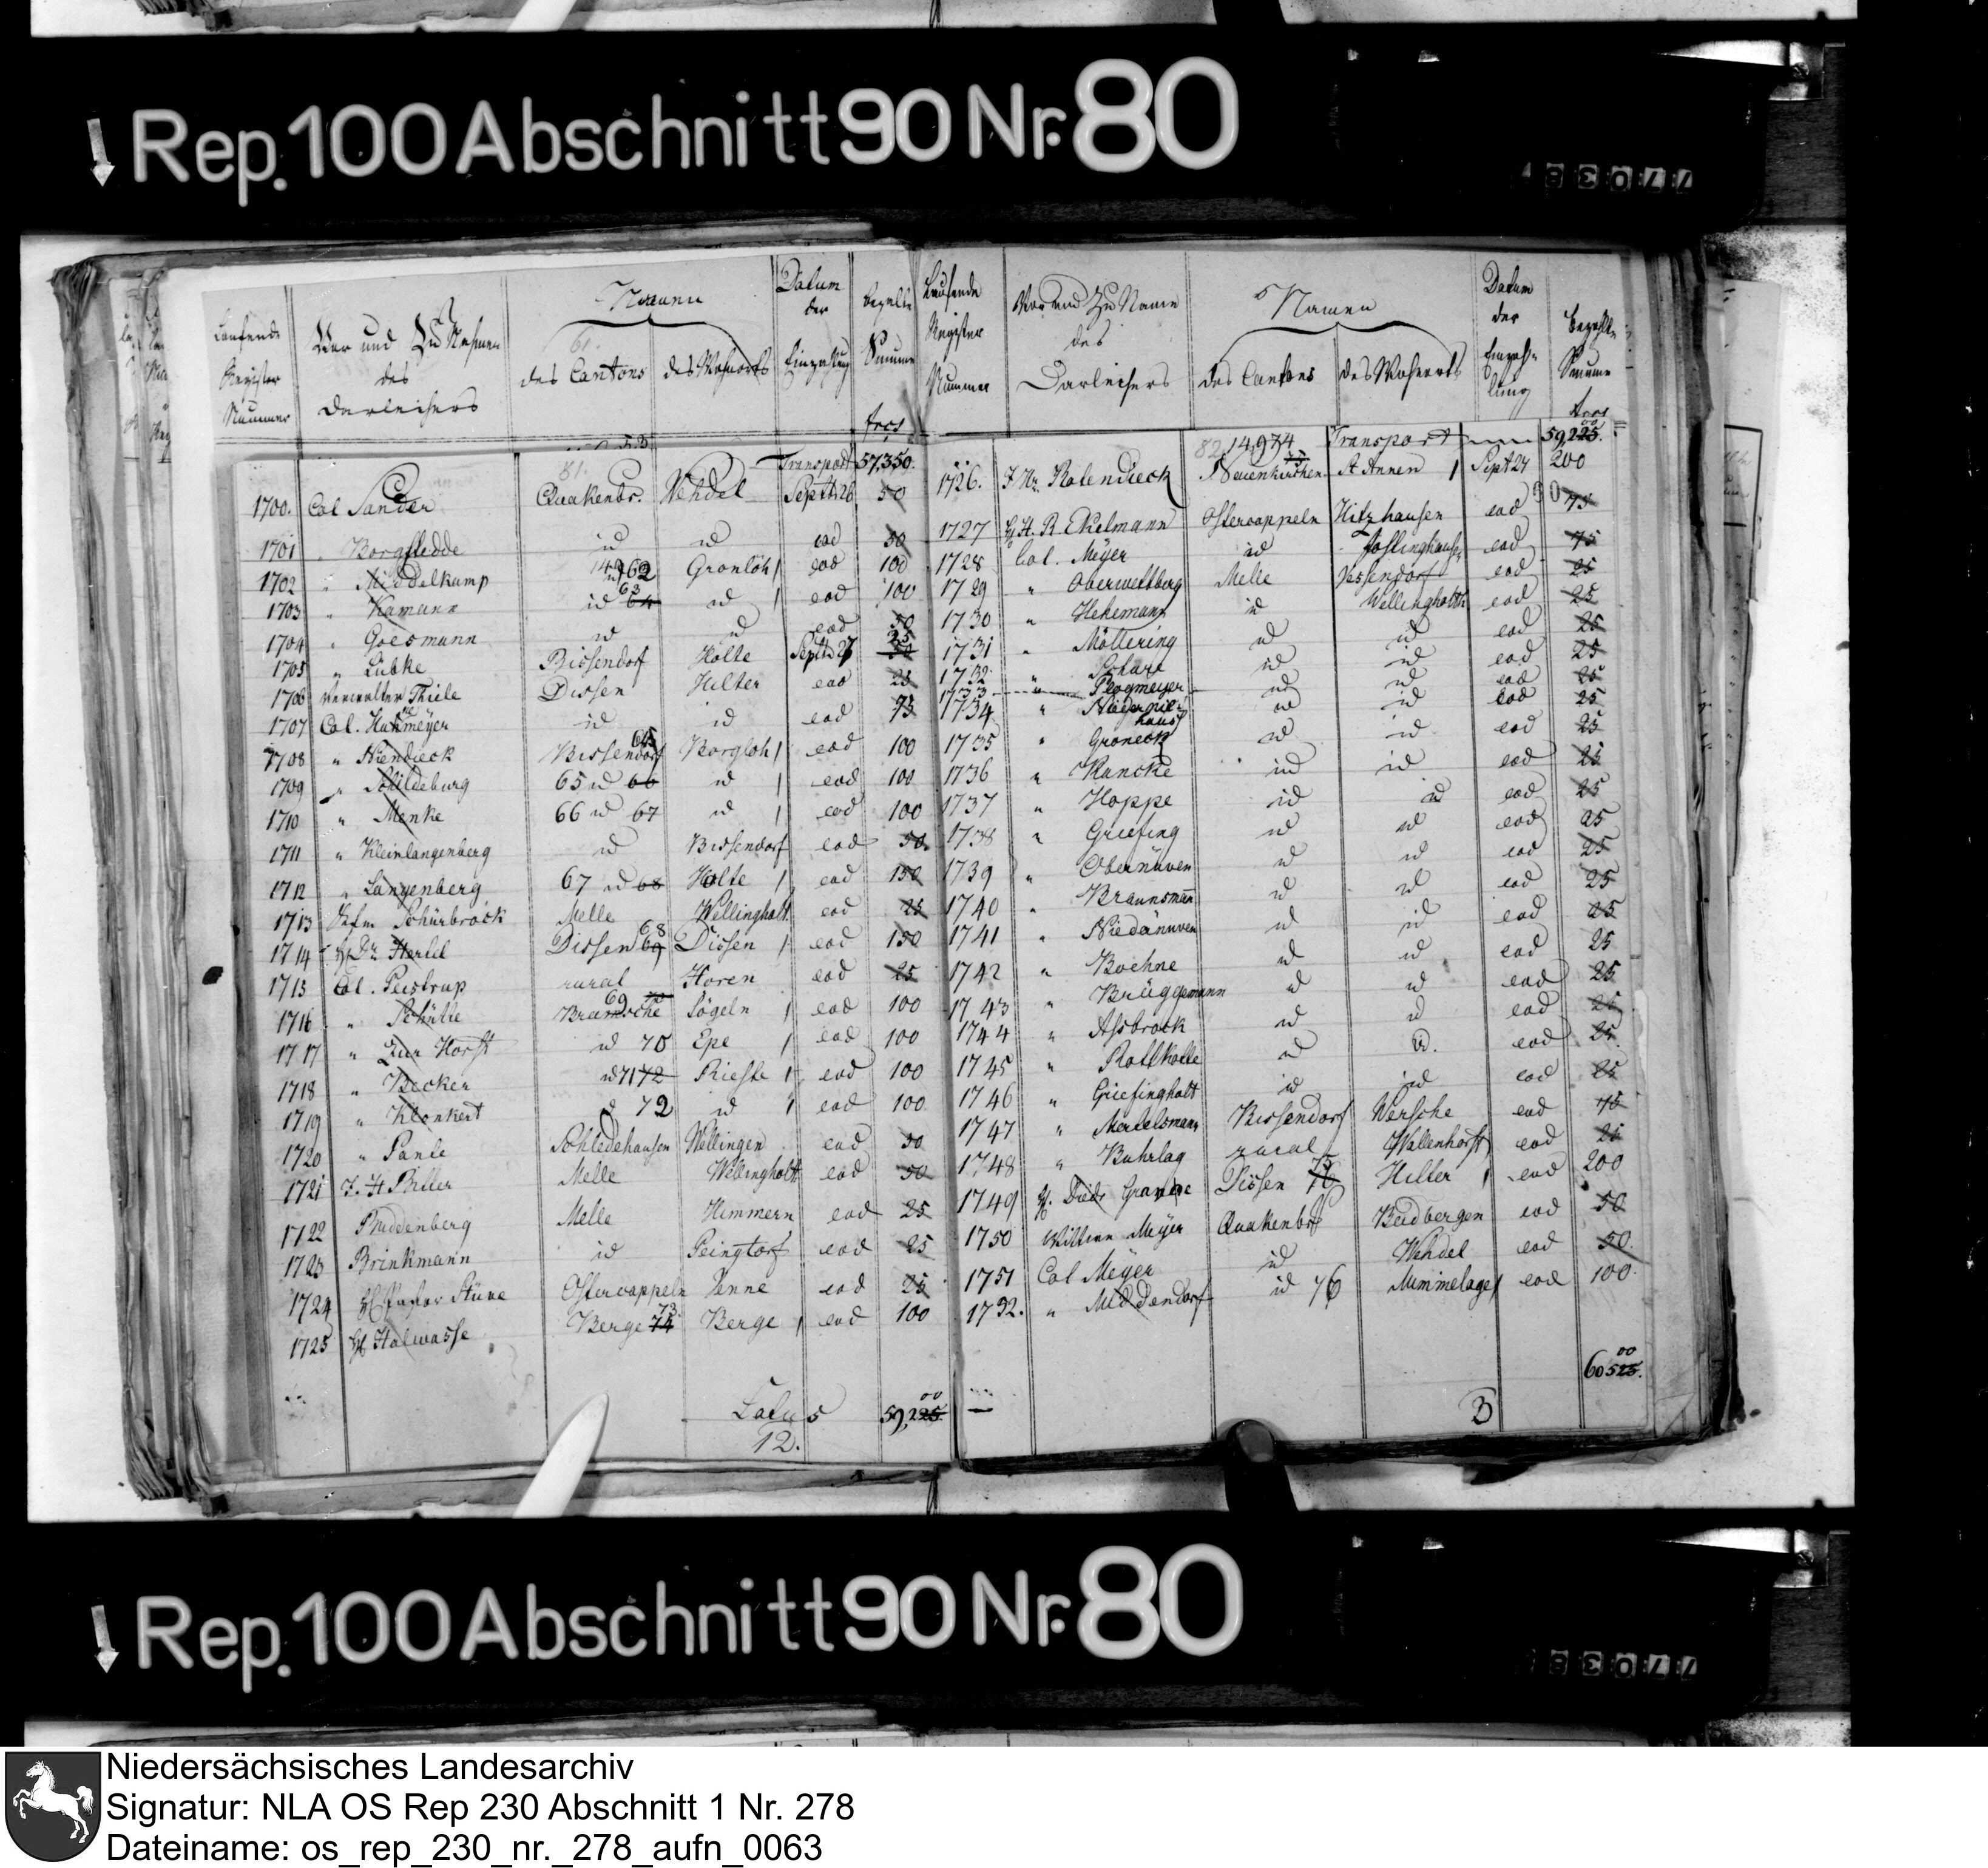 Rep. 100 Abschnitt 90 Nr. 80
Laufende Register Nummer
Vor und Zu Nahmen des Darleihers
Namen
des Cantons
des Wohnorts
Datum der Einzahlung
Bezahlte Summe
frcs
Transport 57,350.
1700. Col Sander Quakenbr. Wehdel Septb 26 50
1701 " Borgstedde id id eod 50
1702 " Middelkamp id 62 Gronloh eod 100
1703 " Kamann id 63 64 id eod 100
1704 " Goesmann id id eod 50
1705 " Lübke Bissendorf Holte Septb 27 25 50
1706 Verwalter Thiele Dissen Hilter eod 25
1707 Col. Hukmeyer id id eod 75
1708 " Niendieck Bissendorf Borgloh eod 100
1709 " Schildeburg 65 id 66 id eod 100
1710 " Menke 66 id 67 id eod 100
1711 " Kleinlangenberg id Bissendorf eod 50.
1712 " Langenberg 67 id 68 Holte eod 150
1713 Kfm Schürbrock Melle Wellingholt. eod 25
1714 H Dr. Hertel Dissen 68 69 Dissen eod 150
1715 Col. Peistrup rural Haren eod 25
1716 " Schütte Bramsche 69 70 Sögeln eod 100
1717 " Zur Horst id 70 Epe eod 100
1718 " Becker id 71 72 Rieste eod 100
1719 " Klonkert id 72 id eod 100
1720 " Pante Schledehausen Wellingen eod 50
1721 J. H Biller Melle Wellingholth eod 50
1722 Buddenberg Melle Himmern eod 25
1723 Brinkmann id Peingtorf eod 25
1724 H Pastor Stüve Ostercappeln Venne eod 25
1725 H Halwasse Berge 73 74 Berge eod 100
Latus 59,225 00
12.
Laufende Register Nummer
Vor und Zu Name des Darleihers
Namen
des Cantons
des Wohnorts
Datum der Einzahlung
Bezahlte Summe
frcs
82 14,974 Transport 59,225. 00
1726. Rolendieck Neuenkirchen St Annen Sept 27 200
1727 H. H. R. Ekelmann Ostercappeln Hitzhausen eod 75
1728 Col. Meyer id Jöstinghausen eod 75
1729 " Oberwellberg Melle Vessendorf eod 25
1730 " Hekemann id Wellingholth eod 25
1731 " Möllering id id eod 25
1732 " id id eod 25
1733 " Plogmeyer id id eod 25
1734 " Niedernie- haus id id eod 25
1735 " Groneck id id eod 25
1736 " Runcke id id eod 25
1737 " Hoppe id id eod 25
1738 " Griefing id id eod 25
1739 " Obernüven id id eod 25
1740 " Braunsmann id id eod 25
1741 " Niedänuven id id eod 25
1742 " Boehne id id eod 25
1743 " Brüggemann id id eod 25
1744 " Asbrock id id eod 25
1745 " Rottkotte id id. eod 25.
1746 " Griefingholt id id eod 25
1747 " Mertelsmann Bissendorf Wersche eod 75
1748 " Buhrlag rural Wallenhorst eod 25
1749 H. Diedr Granve Dissen 75 76 Hilter eod 200
1750 Wittwe Meyer Quakenbr Badbergen eod 50
1751 Col Meyer id Wehdel eod 50
1752. " Middendorf id 76 Mimmelage eod 100
60525. 00
3
Rep. 100 Abschnitt 90 Nr. 80
Niedersächsisches Landesarchiv
Signatur: NLA OS Rep 230 Abschnitt 1 Nr. 278
Dateiname: os_rep_230_nr._278_aufn_0063